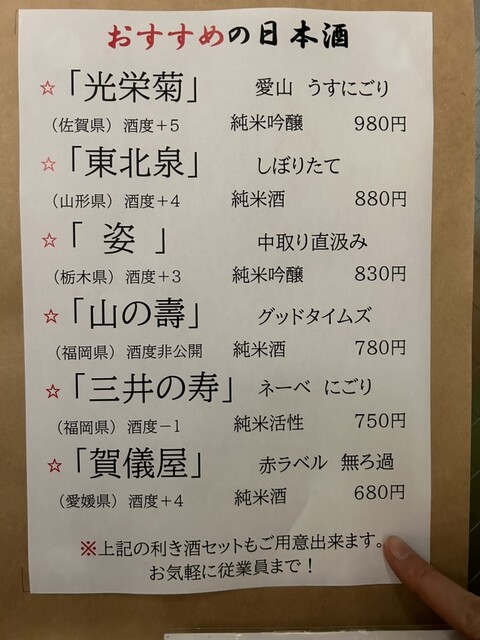 おすすめの日本酒
☆「光栄菊」 愛山 うすにごり
（佐賀県）酒度＋5 純米吟醸 980円
☆「東北泉」 しぼりたて
（山形県）酒度＋4 純米酒 880円
☆「 姿 」 中取り直汲み
（栃木県）酒度＋3 純米吟醸 830円
☆「山の壽」 グッドタイムズ
（福岡県）酒度非公開 純米酒 780円
☆「三井の寿」 ネーベ にごり
（福岡県）酒度－1 純米活性 750円
☆「賀儀屋」 赤ラベル 無ろ過
（愛媛県）酒度＋4 純米酒 680円
※上記の利き酒セットもご用意出来ます。
お気軽に従業員まで！